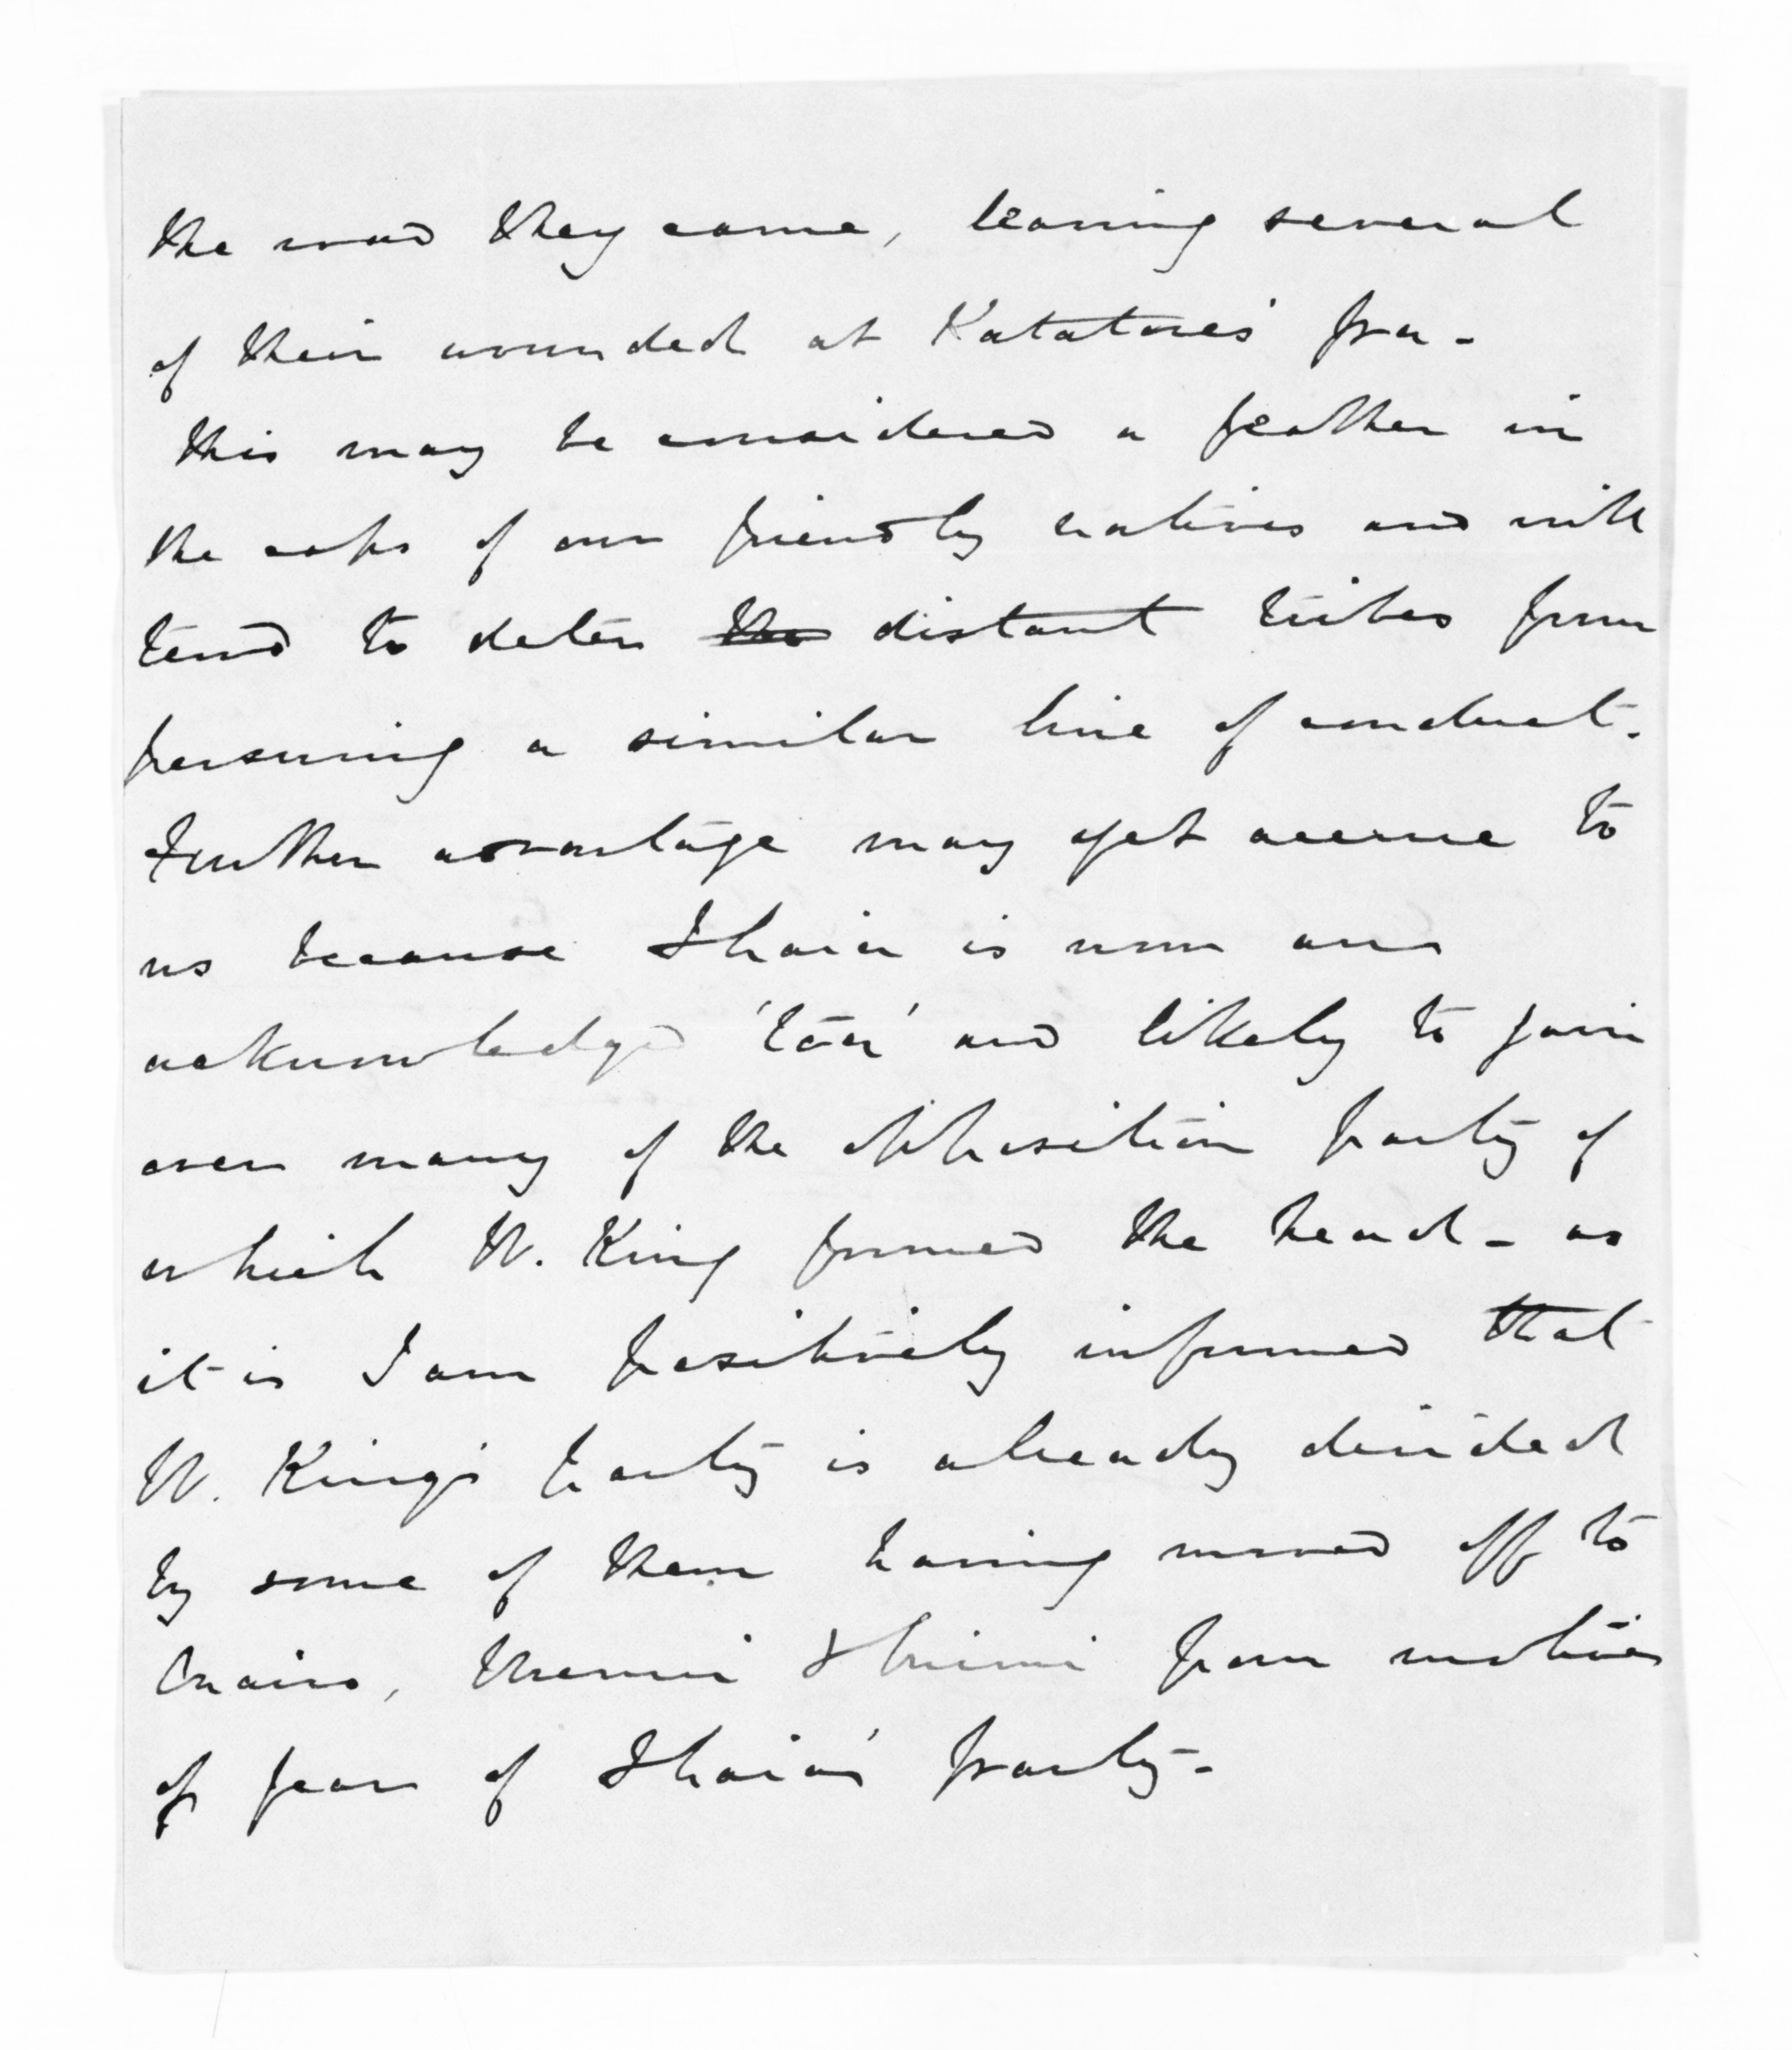 the road they came, leaving several
of their wounded at Katatore's pa -
this may be considered a feather in
the caps of our friendly natives and will
tend to deter the distant tribes from
persuing a similar line of conduct.
Further advantage may yet accrue to
us because Ihaia is now an
acknowledged 'toa' and likely to join
over many of the opposition party of
which W. King formed the head - as
it is I am positively informed that
W. King's party is already divided
by some of them having moved off to
Onairo, Urenui & Mimi from motives
of fear of Ihaia's party -